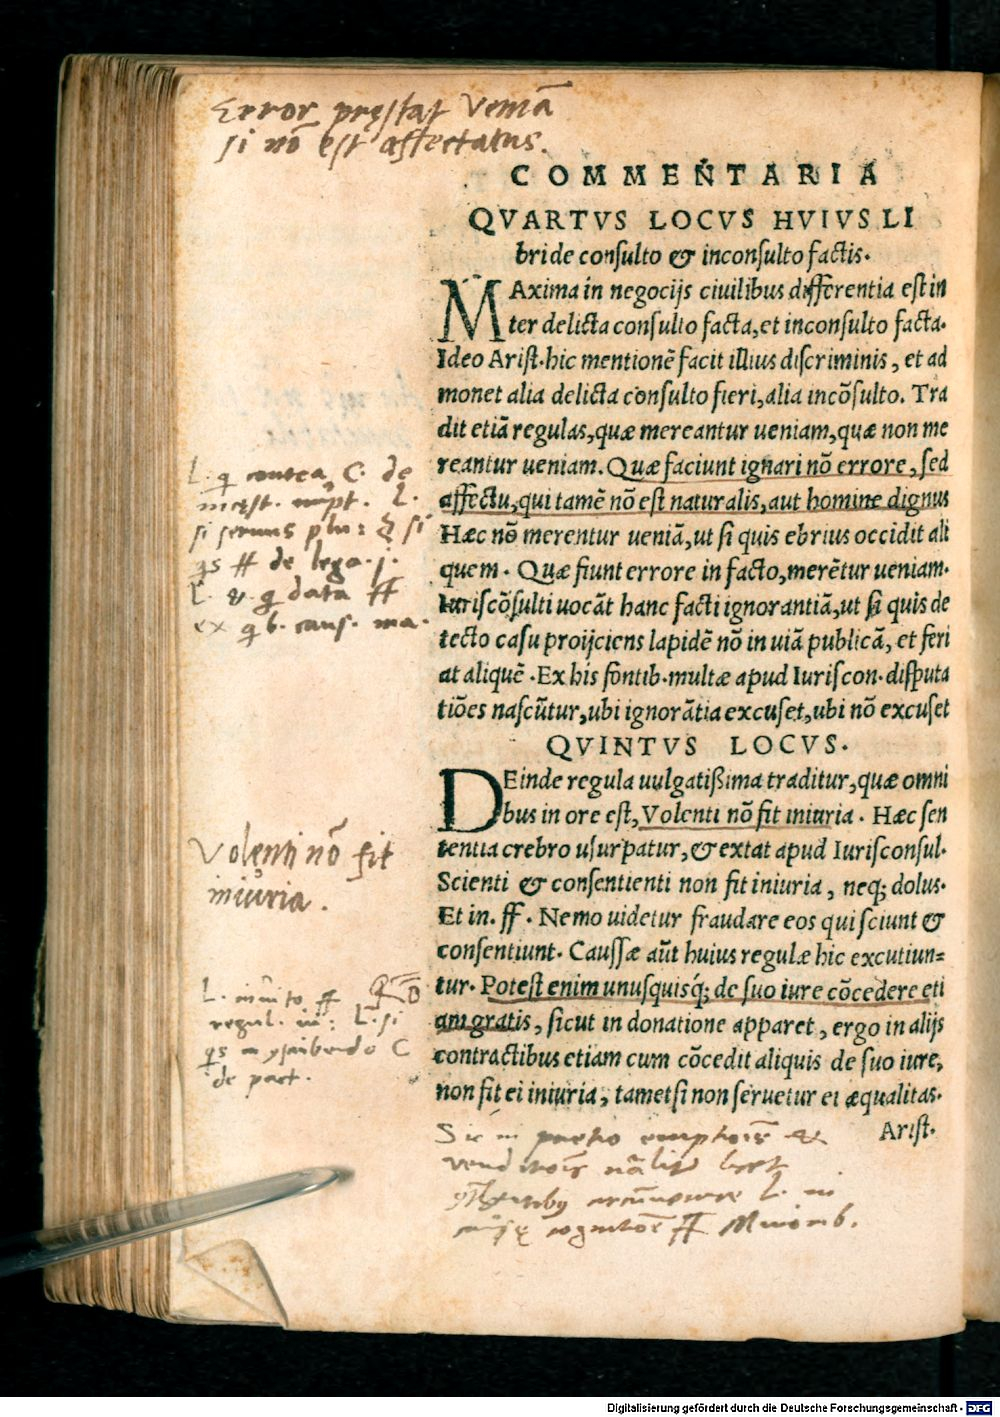 Error pręstat Veniā
si nō est affectatus.
COMMENTARIA
QVARTVS LOCVS HVIVS LI
bri de consulto & inconsulto factis.
MAxima in negocijs ciuilibus differentia est in
ter delicta consulto facta, et inconsulto facta.
Ideo Arist. hic mentionē facit illius discriminis, et ad
monet alia delicta consulto fieri, alia incōsulto. Tra
dit etiā regulas, quæ mereantur ueniam, quæ non me
reantur ueniam. Quæ faciunt ignari nō errore, sed
affectu, qui tamē nō est naturalis, aut homine dignus
Hæc nō merentur ueniā, ut si quis ebrius occidit ali
quem. Quæ fiunt errore in facto, merētur ueniam.
Iuriscōsulti uocāt hanc facti ignorantiā, ut si quis de
tecto casu proijciens lapidē nō in uiā publicā, et feri
at aliquē. Ex his fontib. multæ apud Iuriscon. disputa
tiōes nascūtur, ubi ignorātia excuset, ubi nō excuset
QVINTVS LOCVS.
DEinde regula uulgatißima traditur, quæ omni
bus in ore est, Volenti nō fit iniuria. Hæc sen
tentia crebro usurpatur, & extat apud Iurisconsul.
Scienti & consentienti non fit iniuria, neq; dolus.
Et in. ff. Nemo uidetur fraudare eos qui sciunt &
consentiunt. Caussæ aūt huius regulæ hic excutiun=
tur. Potest enim unusquisq́; de suo iure cōcedere eti
am gratis, sicut in donatione apparet, ergo in alijs
contractibus etiam cum cōcedit aliquis de suo iure,
non fit ei iniuria, tametsi non seruetur ei æqualitas.
Arist.
L. q contra C. de
L.
si seruus plu: § si
qs ff de lega. j.
data ff
ex q b. caus. ma.
Volenti nō fit
iniuria.
L. inuito ff
regul. iu: L. si
qs C
de pact.
Sic in pretio emptiōis &
venditiōis nāliter licet
L. in
causę cognitiōe ff Minorib.
Digitalisierung gefördert durch die Deutsche Forschungsgemeinschaft - DFG